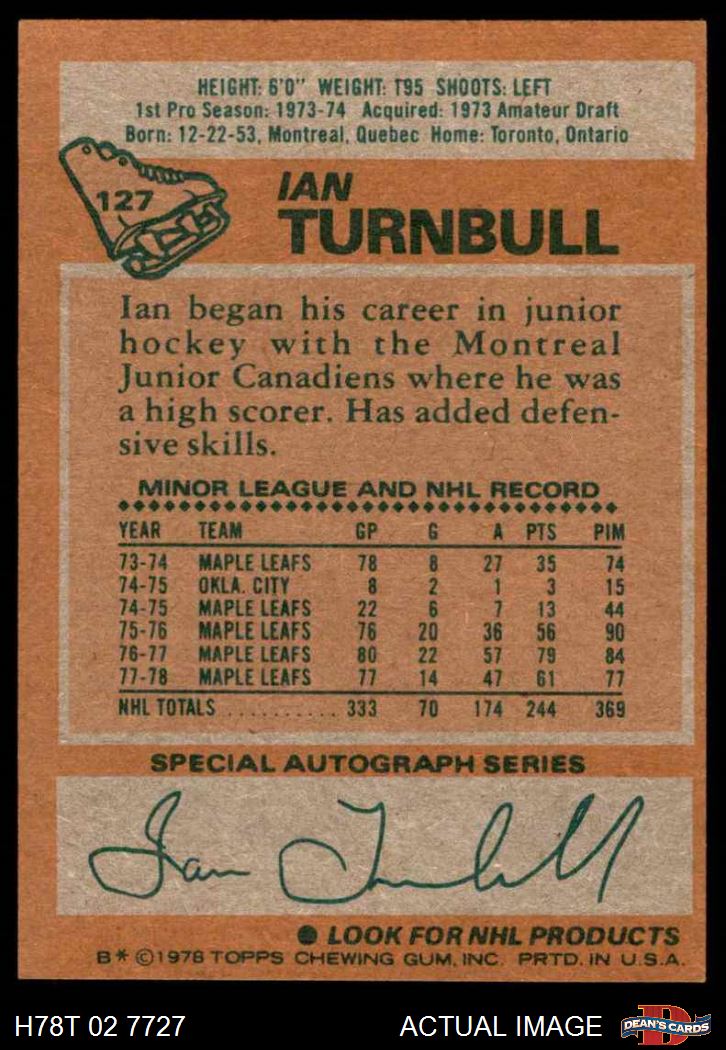 HEIGHT: 6'0" WEIGHT: 195 SHOOTS: LEFT
1st Pro Season: 1973-74 Acquired: 1973 Amateur Draft
Born: 12-22-53, Montreal, Quebec Home: Toronto, Ontario
127
IAN
TURNBULL
Ian began his career in junior
hockey with the Montreal
Junior Canadiens where he was
a high scorer. Has added defen-
sive skills.
MINOR LEAGUE AND NHL RECORD
YEAR TEAM GP G A PTS PIM
73-74 MAPLE LEAFS 78 8 27 35 74
74-75 OKLA. CITY 8 2 1 3 15
74-75 MAPLE LEAFS 22 6 7 13 44
75-76 MAPLE LEAFS 76 20 36 56 90
76-77 MAPLE LEAFS 80 22 57 79 84
77-78 MAPLE LEAFS 77 14 47 61 77
NHL TOTALS ........... 333 70 174 244 369
SPECIAL AUTOGRAPH SERIES
Ian Turnbull
● LOOK FOR NHL PRODUCTS
B* ©1978 TOPPS CHEWING GUM, INC. PRTD. IN U.S.A.
H78T 02 7727 ACTUAL IMAGE
D
DEAN'S CARDS